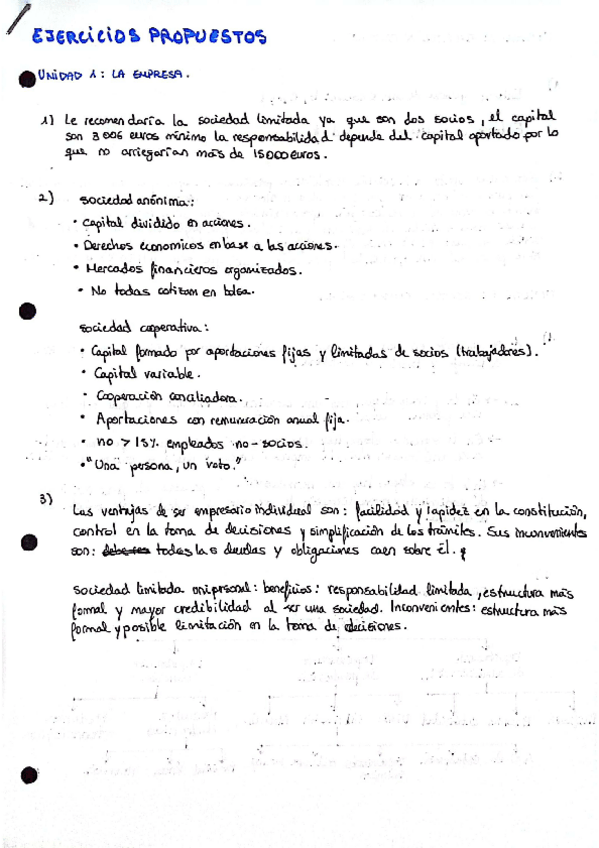 EJERCICIOS PROPUESTOS
UNIDAD 1: LA EMPRESA.
1) Le recomendaría la sociedad limitada ya que son dos socios, el capital
son 3 006 euros mínimo la responsabilidad depende del capital aportado por lo
que no arriegarían más de 15000 euros.
2) sociedad anónima:
· Capital dividido en acciones.
· Derechos economicos en base a las acciones.
· Mercados financieros organizados.
· No todas cotizan en bolsa.
sociedad cooperativa:
· Capital formado por aportaciones fijas y limitadas de socios (trabajadores).
· Capital variable.
· Cooperación
· Aportaciones con remuneración anual fija.
· no > 15% empleados no-socios.
· "Una persona, un voto."
3) Las ventajas de ser empresario individual son: facilidad y rapidez en la constitución,
control en la toma de decisiones y simplificación de los trámites. Sus inconvenientes
son: todas las deudas y obligaciones caen sobre él.
sociedad limitada unipersonal: beneficios: responsabilidad limitada, estructura más
formal y mayor credibilidad al ser una sociedad. Inconvenientes: estructura más
formal y posible limitación en la toma de decisiones.